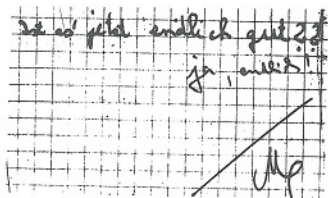 Ist es jetzt endlich gut??
ja, endlich!!